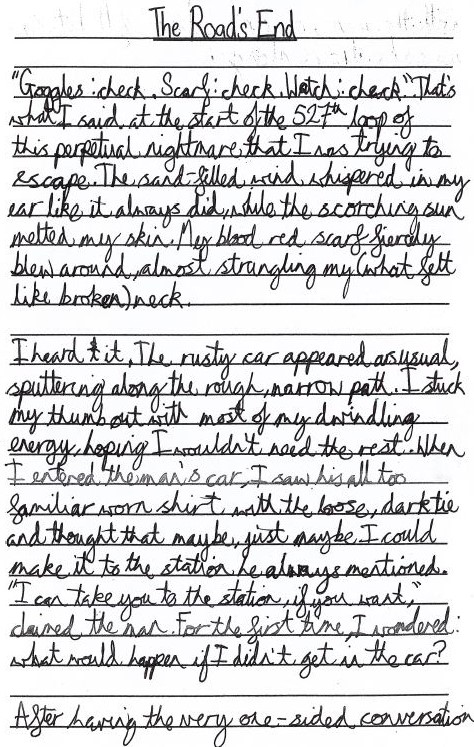 The Road's End
"Goggles : check. Scarf : check. Watch : check." That's
what I said at the start of the 527th loop of
this perpetual nightmare that I was trying to
escape. The sand-filled wind whispered in my
ear like it always did, while the scorching sun
melted my skin. My blood red scarf fiercely
blew around, almost strangling my (what felt
like broken) neck.
I heard it. The rusty car appeared as usual,
sputtering along the rough, narrow path. I stuck
my thumb out with most of my dwindling
energy, hoping I wouldn't need the rest. When
I entered the man's car, I saw his all too
familiar worn shirt with the loose, dark tie
and thought that maybe, just maybe, I could
make it to the station he always mentioned.
"I can take you to the station, if you want,"
claimed the man. For the first time, I wondered:
what would happen if I didn't get in the car?
After having the very one-sided conversation